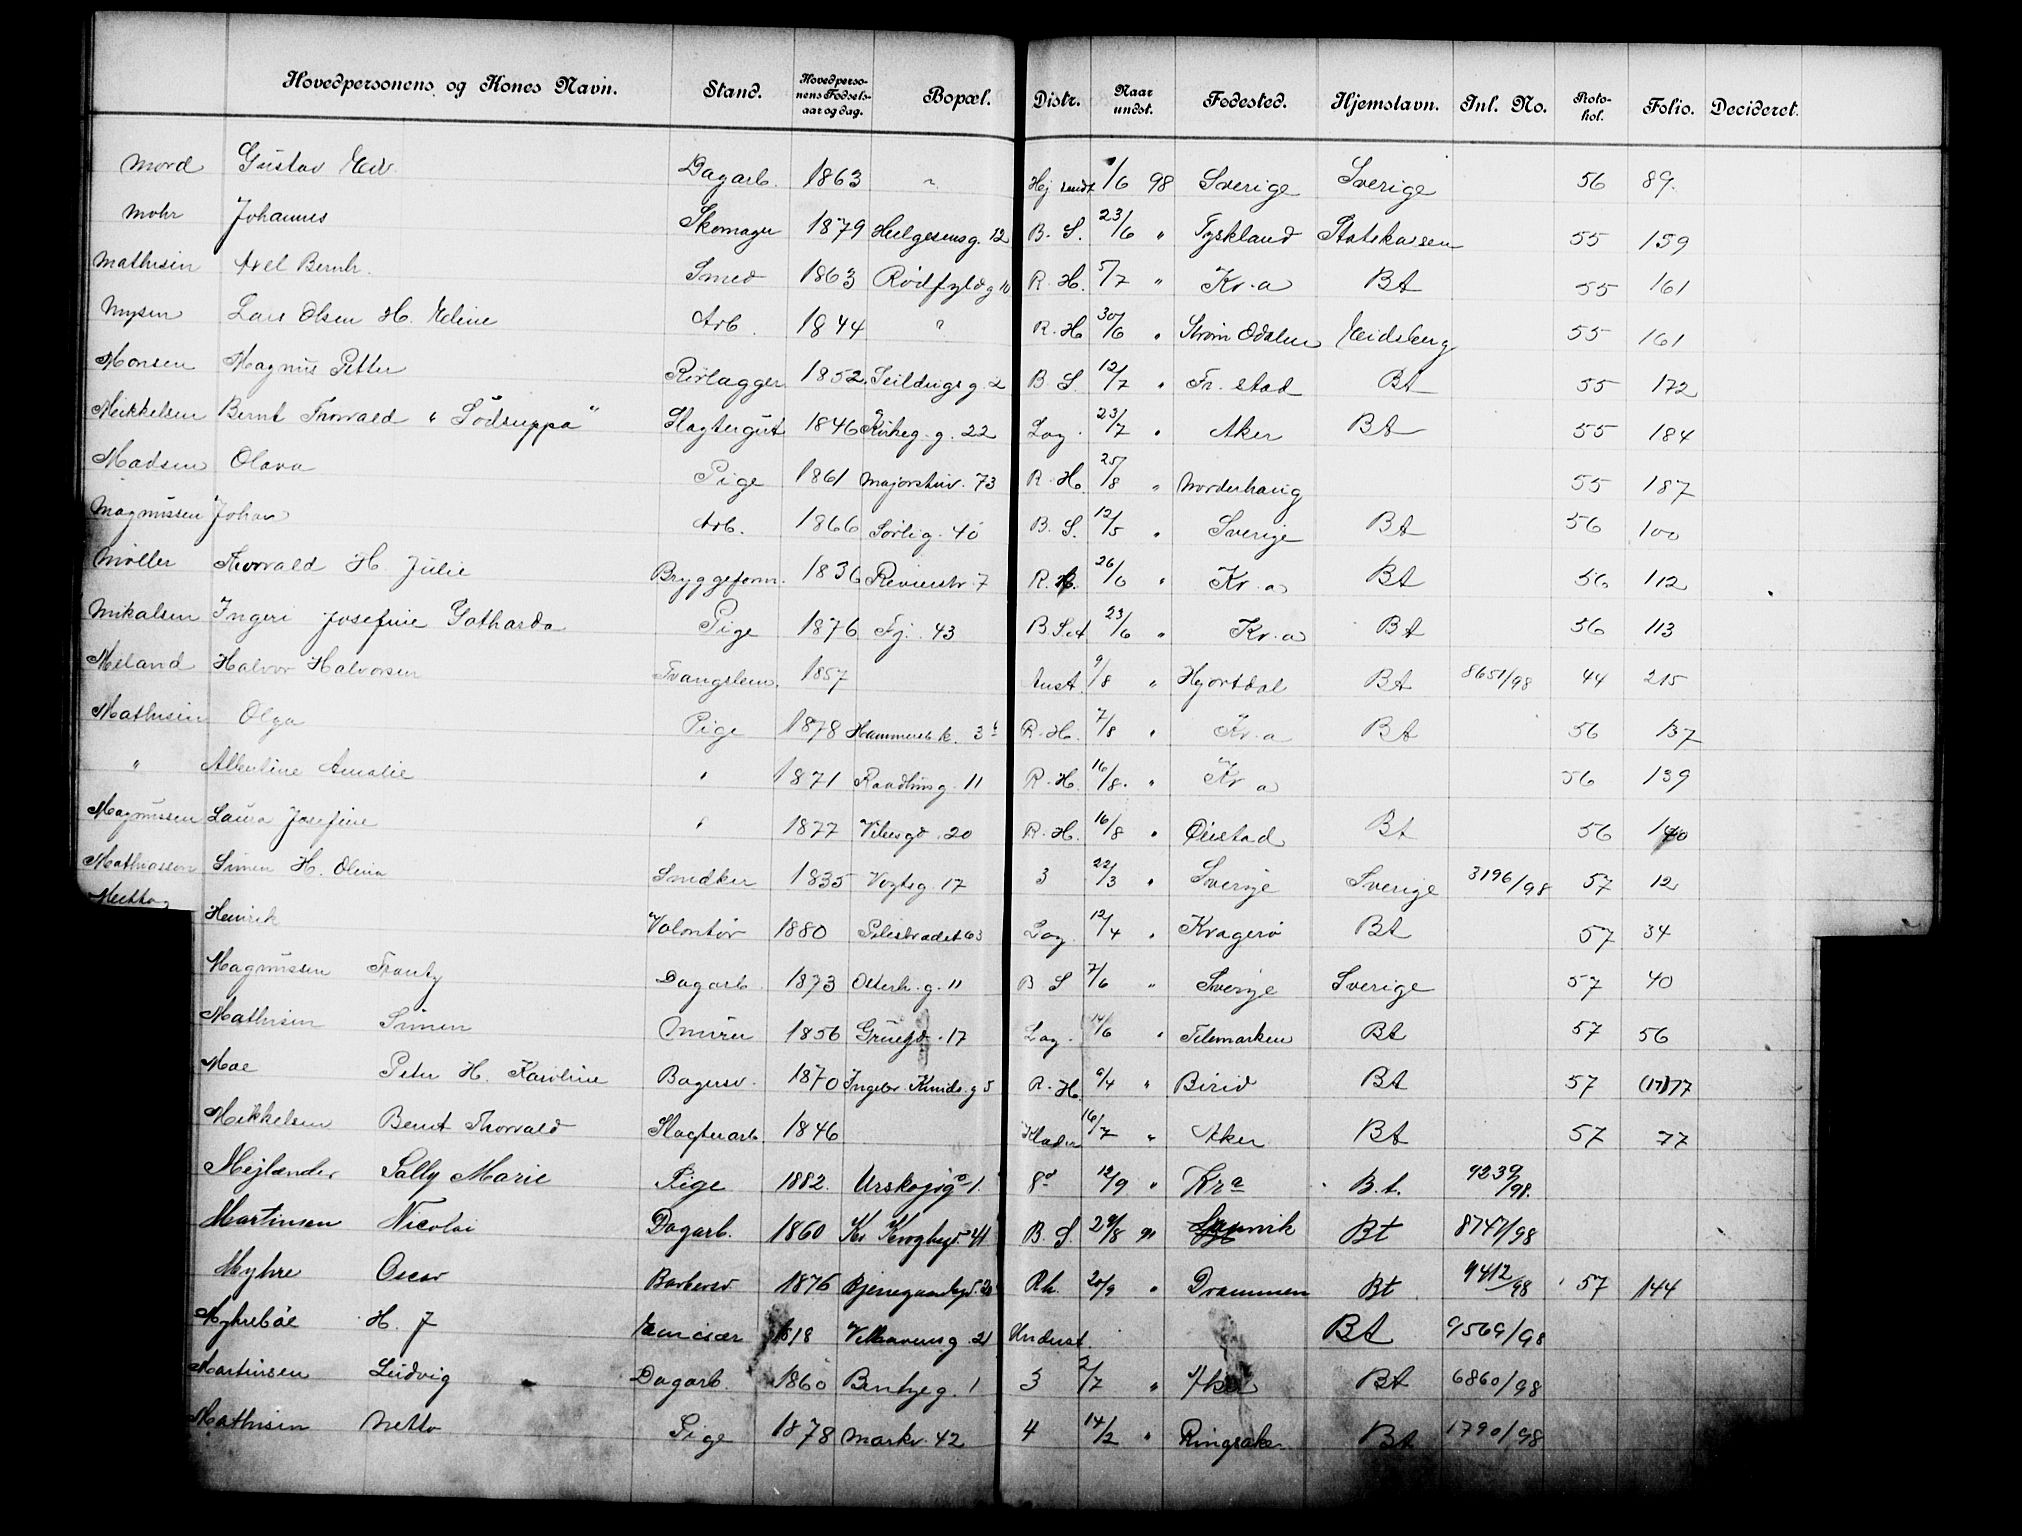 Hovedpersonens og Kones Navn. Stand. Hovedpersonens Fødselsaar og dag. Bopæl. Distr. Naar undst. Fødested. Hjemstavn. Inl. No. Protokol. Folio. Decideret.
Mord Gustav Edv. Dagarb. 1863 " 1/6 98 Sverige Sverige 56 89.
Mohr Johannes Skomager 1879 Helgesensg. 12 B. S. 23/6 " Tyskland Statskassen 55 159
Mathisen Axel Bernh. Smed 1863 Rødfyldg 10 R. H. 5/7 " Kr.a Bt 55 161
Mysen Lars Olsen H. Eline Arb. 1844 " R. H 30/6 " Strøm Odalen Eidsberg 55 161
Monsen Magnus Petter Rørlægger 1852 Seildugsg. 2 B S. 12/7 " Fr. stad Bt 55 172
Mikkelsen Bernt Thorvald " Sødsuppa " Slagtergut 1846 Kirkeg. g. 22 Log. 23/7 " Aker Bt 55 184
Madsen Olava Pige 1861 Majorstuv. 73 R. H. 25/8 " Norderhaug 55 187
Magnussen Johan Arb. 1866 Sørlig. 40 B. S. 12/5 " Sverige Bt 56 100
Møller Thorvald H Julie Bryggeform. 1836 Revierstr. 7 R. H. 26/6 " Kr.a Bt 56 112
Mikalsen Ingeri Josefine Gotharda Pige 1876 Fj. 43 B S.A 23/6 " Kr.a Bt 56 113
Meland Halvor Halvorsen Tvangslem. 1857 Anst 9/8 " Hjortdal Bt 8651/98 44 215
Mathisen Olga Pige 1878 Hammersb.k. 3 R. H. 7/8 " Kr.a Bt 56 137
" Albertine Amalie " 1871 Raadhusg. 11 R. H. 16/8. " Kr a 56 139
Magnussen Laura Josefine " 1877 Vibesgd. 20 R. H. 16/8 " Øiestad Bt 56 140
Mathiasson Simen H. Olina Snedker 1835 Vogtsg. 17 3 22/3 " Sverige Sverige 3196/98 57 12
Henrik Volontør 1880 Pilestrædet 63 Log. 12/4 " Kragerø Bt 57 34
Magnussen Frantz Dagarb. 1873 Osterh. g. 11 B S 7/6 " Sverige Sverige 57 40
Mathisen Simen Murer 1856 Grüngd. 17 Log. 14/6 " Telemarken Bt 57 56
Moe Peter H. Karoline Bagersv. 1870 Ingebr. Knuds. g 5 R. H. 6/4 " Birid Bt 57 (17) 77
Mikkelsen Bernt Thorvald Slagterarb. 1846 Klæder 16/7 " Aker Bt 57 77
Mejlænder Sally Marie Pige 1882. Urskogg 1. 8d 12/9 " Kra B.t. 9239/98.
Martinsen Nicolai Dagarb. 1860 Kr Kroghsgd. 41 B. S. 29/8 " Bt 8747/98
Myhre Oscar Barbersv 1876 Rh. 20/9 " Drammen Bt 9412/98 57 144
Myhrebøe H. J 1818 21 Underst. Bt 9569/98
Martinsen Ludvig Dagarb. 1860 Bentseg. 1 3 2/7 " Aker Bt 6860/98
Mathisen Netta Pige 1878 Markv. 42 4 14/2 " Ringsaker Bt 1790/98